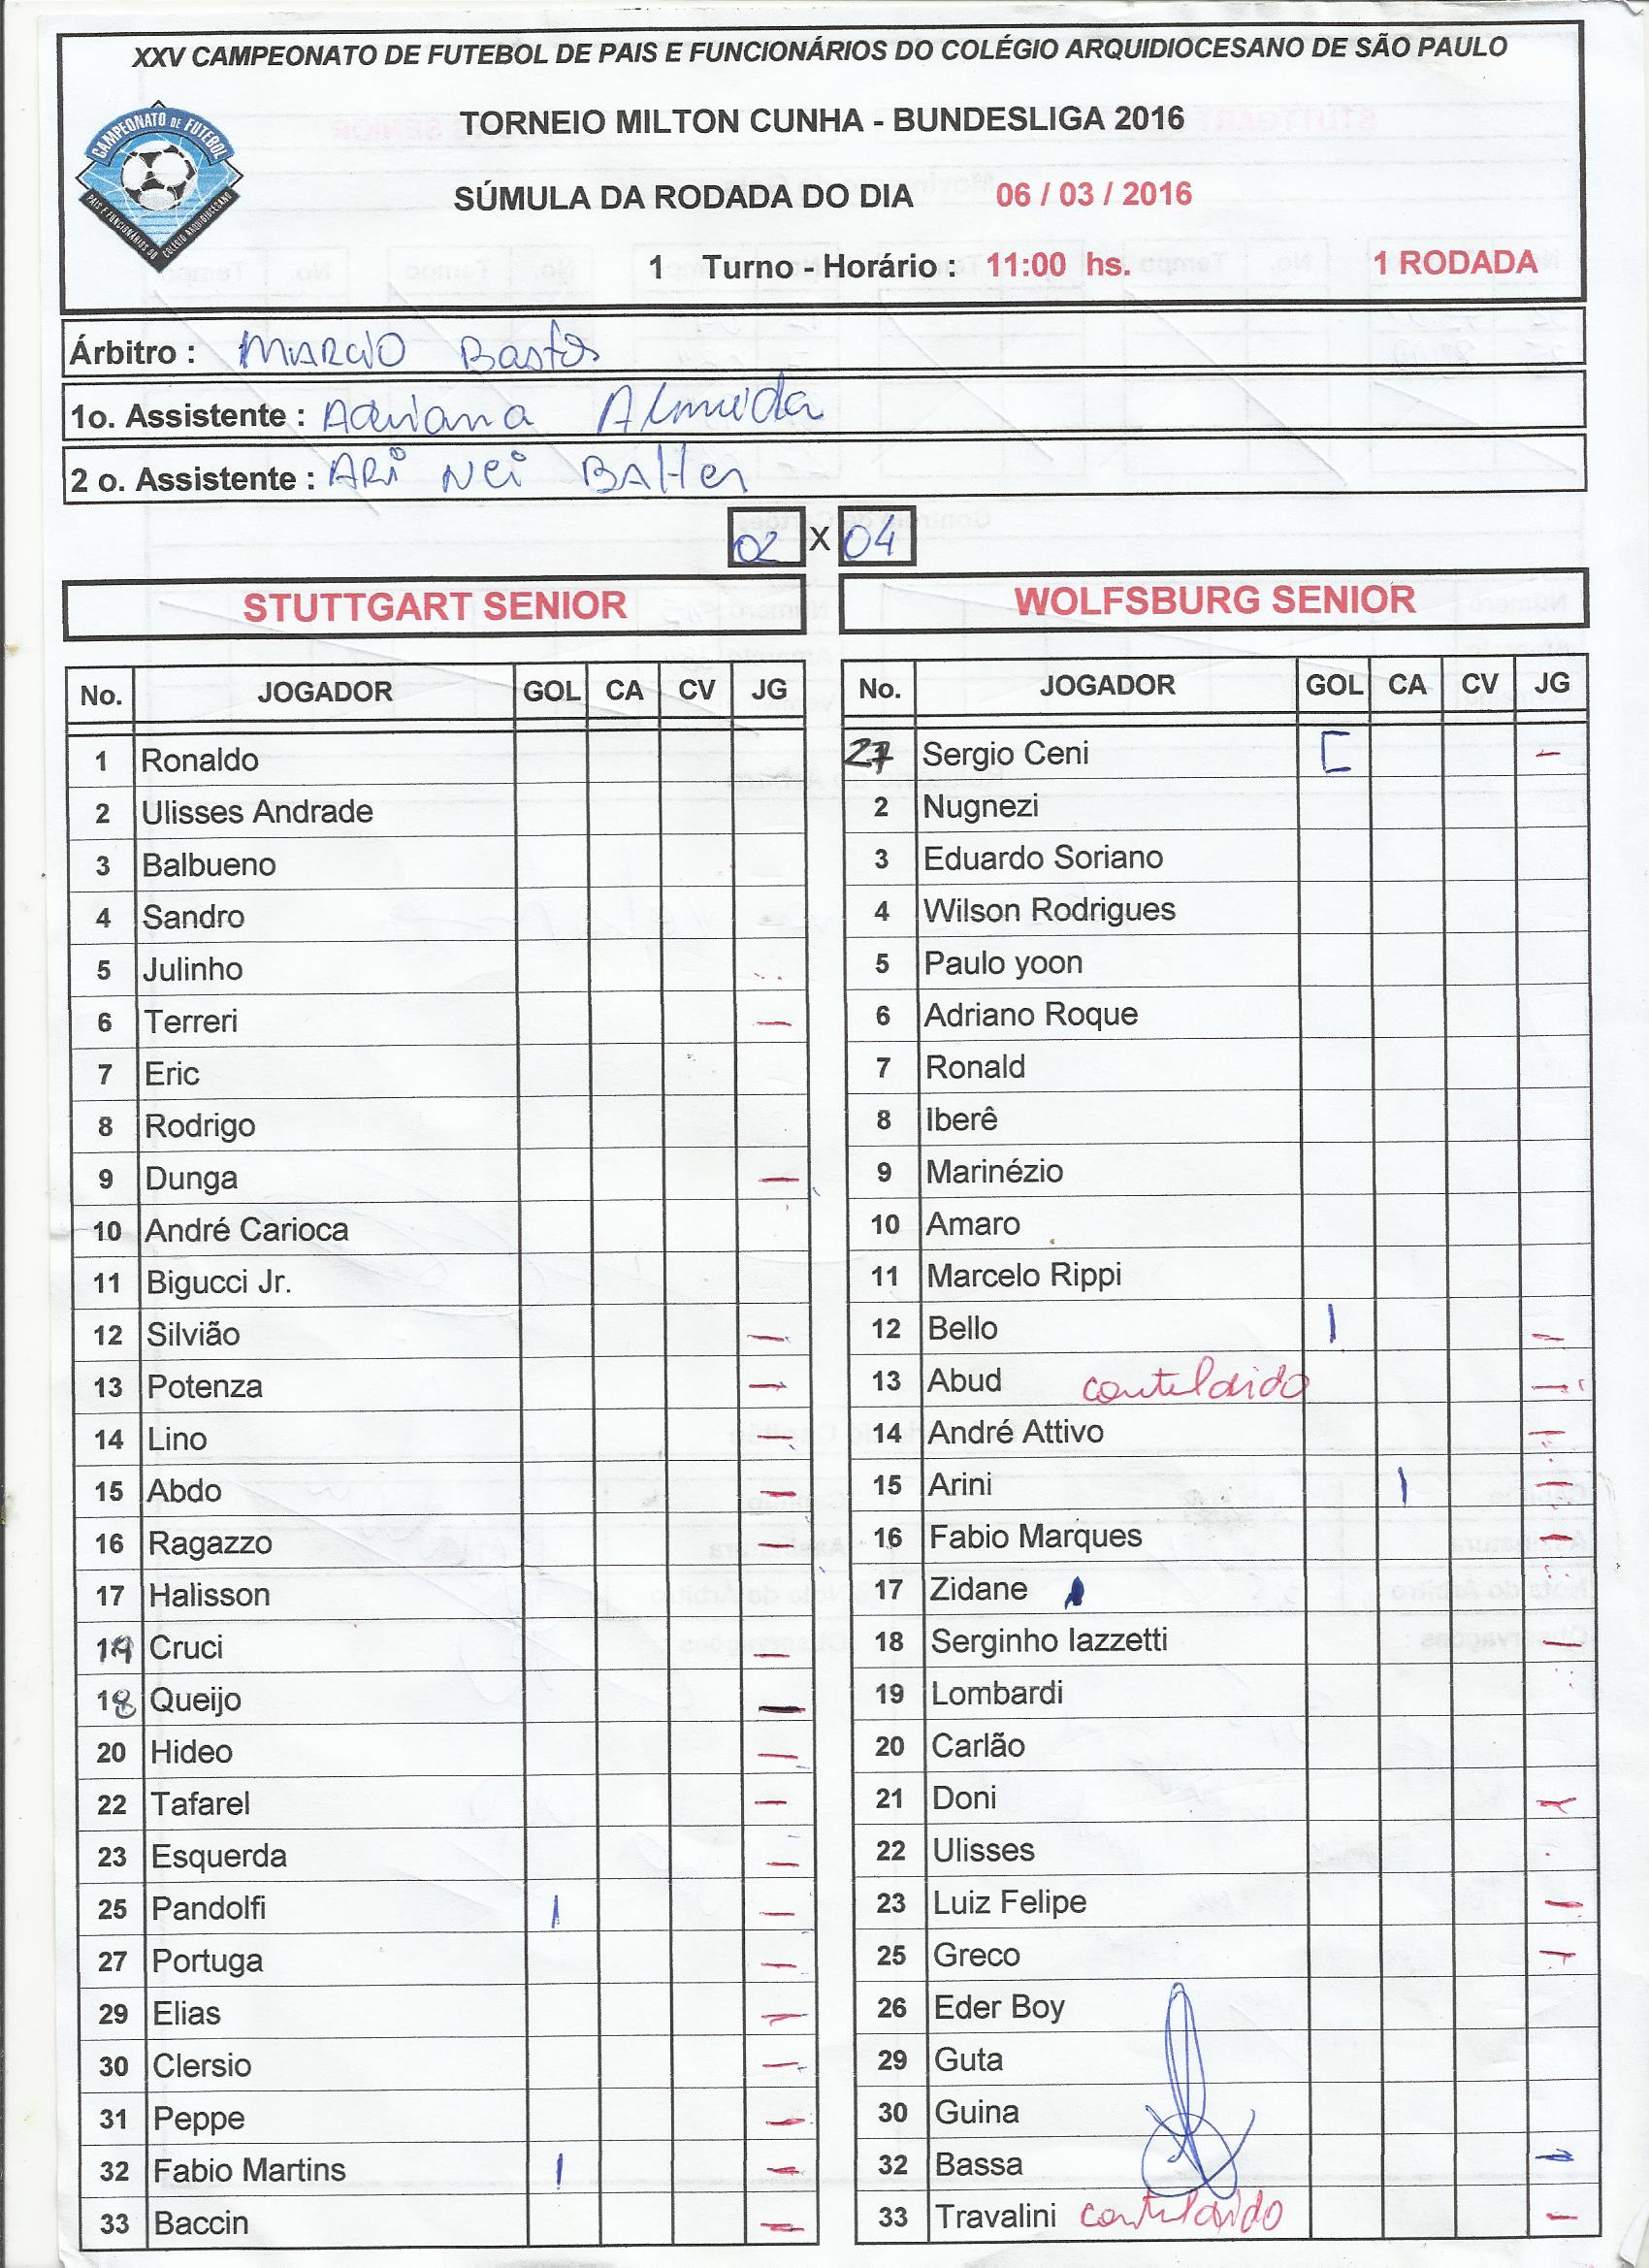 XXV CAMPEONATO DE FUTEBOL DE PAIS E FUNCIONÁRIOS DO COLÉGIO ARQUIDIOCESANO DE SÃO PAULO
CAMPEONATO DE FUTEBOL
PAIS E FUNCIONÁRIOS DO COLÉGIO ARQUIDIOCESANO
TORNEIO MILTON CUNHA - BUNDESLIGA 2016
SÚMULA DA RODADA DO DIA 06 / 03 / 2016
1 Turno - Horário : 11:00 hs. 1 RODADA
Árbitro : MARCIO Bastos
1o. Assistente : Adriana Almeida
2 o. Assistente : ARi Nei
02 X 04
STUTTGART SENIOR
No. JOGADOR GOL CA CV JG
1 Ronaldo
2 Ulisses Andrade
3 Balbueno
4 Sandro
5 Julinho
6 Terreri
7 Eric
8 Rodrigo
9 Dunga
10 André Carioca
11 Bigucci Jr.
12 Silvião
13 Potenza
14 Lino
15 Abdo
16 Ragazzo
17 Halisson
19 Cruci
18 Queijo
20 Hideo
22 Tafarel
23 Esquerda
25 Pandolfi
27 Portuga
29 Elias
30 Clersio
31 Peppe
32 Fabio Martins
33 Baccin
WOLFSBURG SENIOR
No. JOGADOR GOL CA CV JG
27 Sergio Ceni
2 Nugnezi
3 Eduardo Soriano
4 Wilson Rodrigues
5 Paulo yoon
6 Adriano Roque
7 Ronald
8 Iberê
9 Marinézio
10 Amaro
11 Marcelo Rippi
12 Bello
13 Abud
14 André Attivo
15 Arini
16 Fabio Marques
17 Zidane
18 Serginho Iazzetti
19 Lombardi
20 Carlão
21 Doni
22 Ulisses
23 Luiz Felipe
25 Greco
26 Eder Boy
29 Guta
30 Guina
32 Bassa
33 Travalini